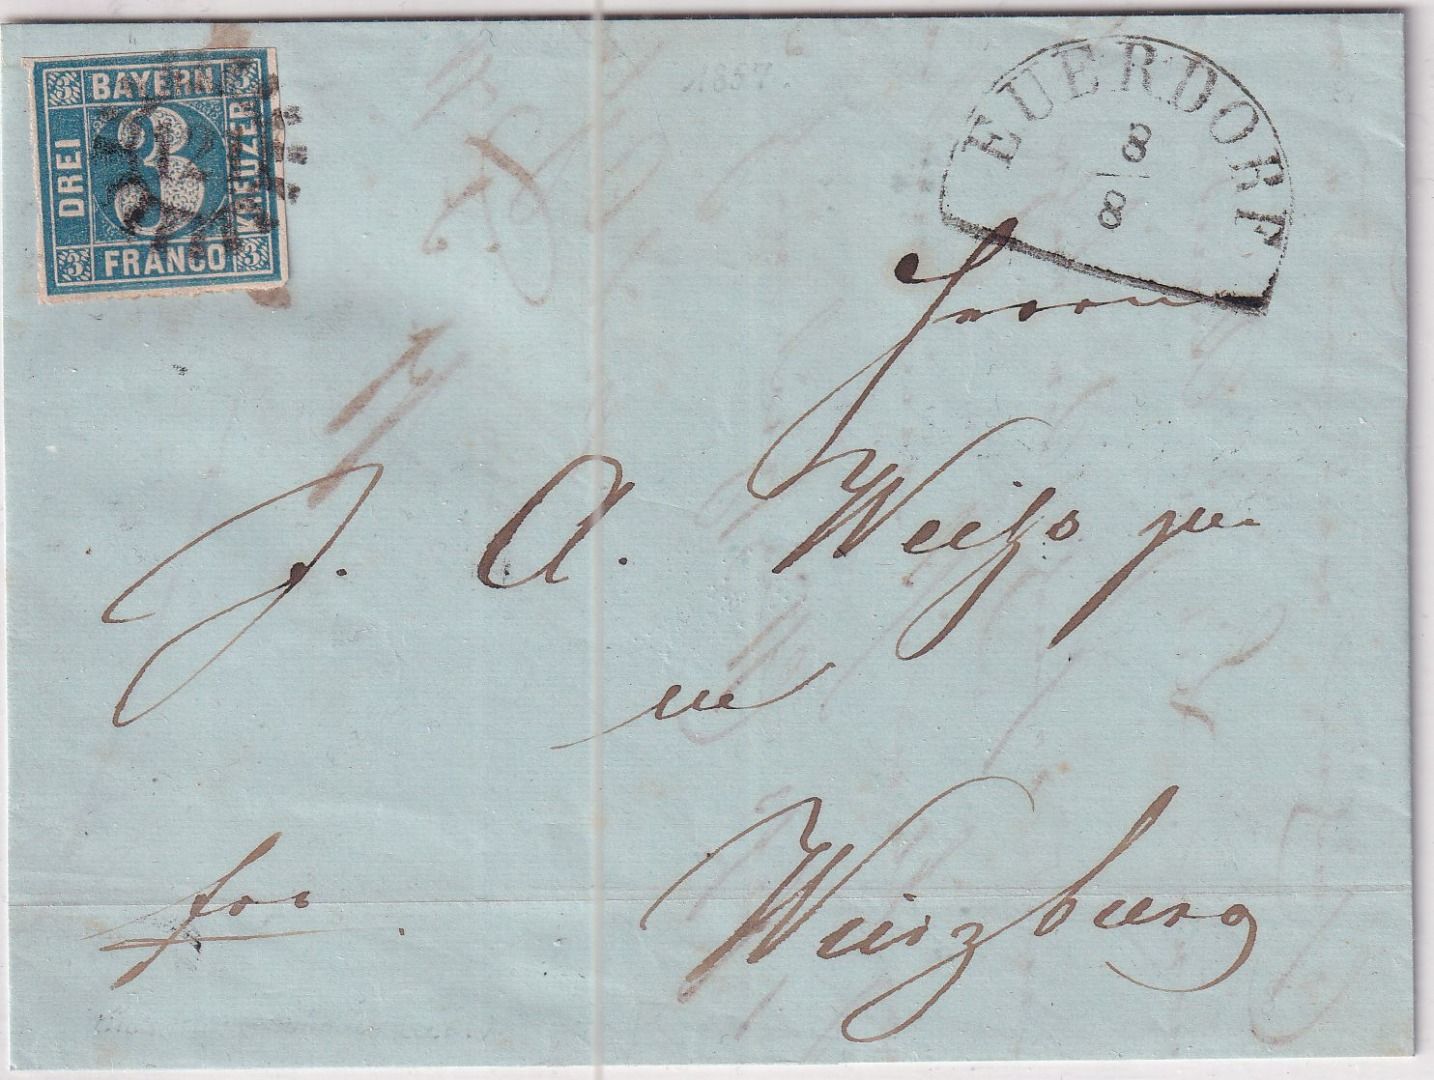 3 BAYERN 3
DREI 3 KREUZER
3 FRANCO 3
1857.
EUERDORF
8
8
Herrn
J. A.
in
Würzburg